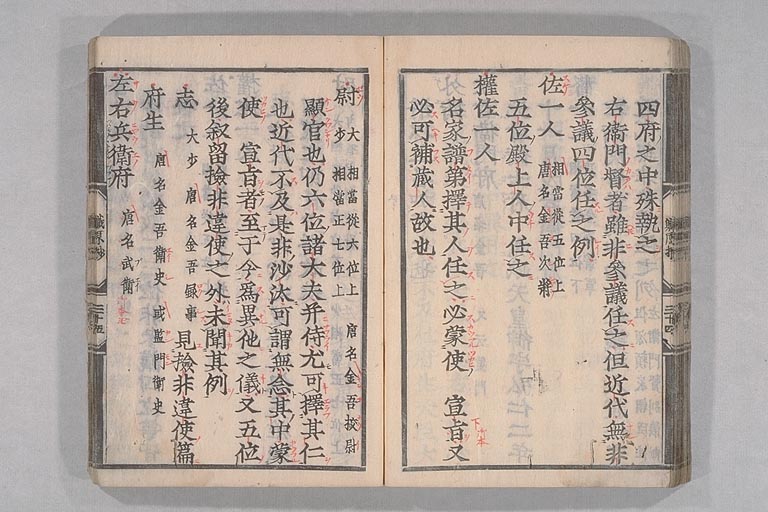 四府之中殊執之
右衛門督者雖非參議任之但近代無非
參議四位任之例
佐一人 相當從五位上 唐名金吾次將
五位殿上人中任之
權佐一人
名家譜第擇其人任之必蒙使 宣旨又
必可補蔵人故也
尉 大 相當從六位上 少 相當正七位上 唐名金吾挍尉
顯官也仍六位諸大夫并侍尤可擇其仁
也近代不及是非沙汰可謂無念其中蒙
使 宣旨者至于今爲異他之儀又五位
後叙留撿非違使之外未聞其例
志 大少 唐名金吾録事 見撿非違使篇
府生 唐名金吾衛史 或監門衛史
左右兵衛府 唐名武衛